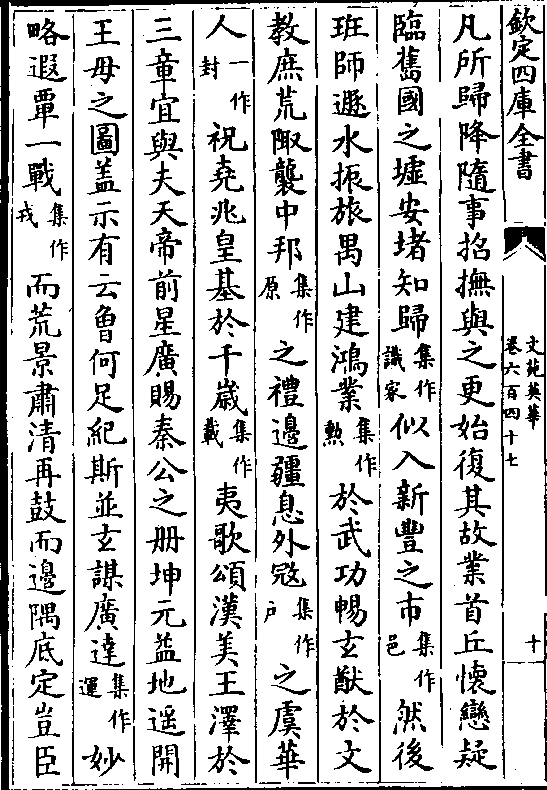 欽定四庫全書
文苑英華
卷六百四十七
十
凡所歸降隨事招撫與之更始復其故業首丘懷戀疑
臨舊國之墟安堵知歸集作識家似入新豐之市集作邑然後
班師遯水振旅禺山建鴻業集作勲於武功暢玄猷於文
教庶荒陬襲中邦集作原之禮邊疆息外寇集作户之虞華
人一作封祝堯兆皇基於千歳集作載夷歌頌漢美王澤於
三章宜與夫天帝前星廣賜秦公之册坤元益地遥開
王母之圖盖示有云曾何足紀斯並玄謀廣達集作運妙
略遐覃一戰集作戎而荒景肅清再鼓而邊隅底定豈臣